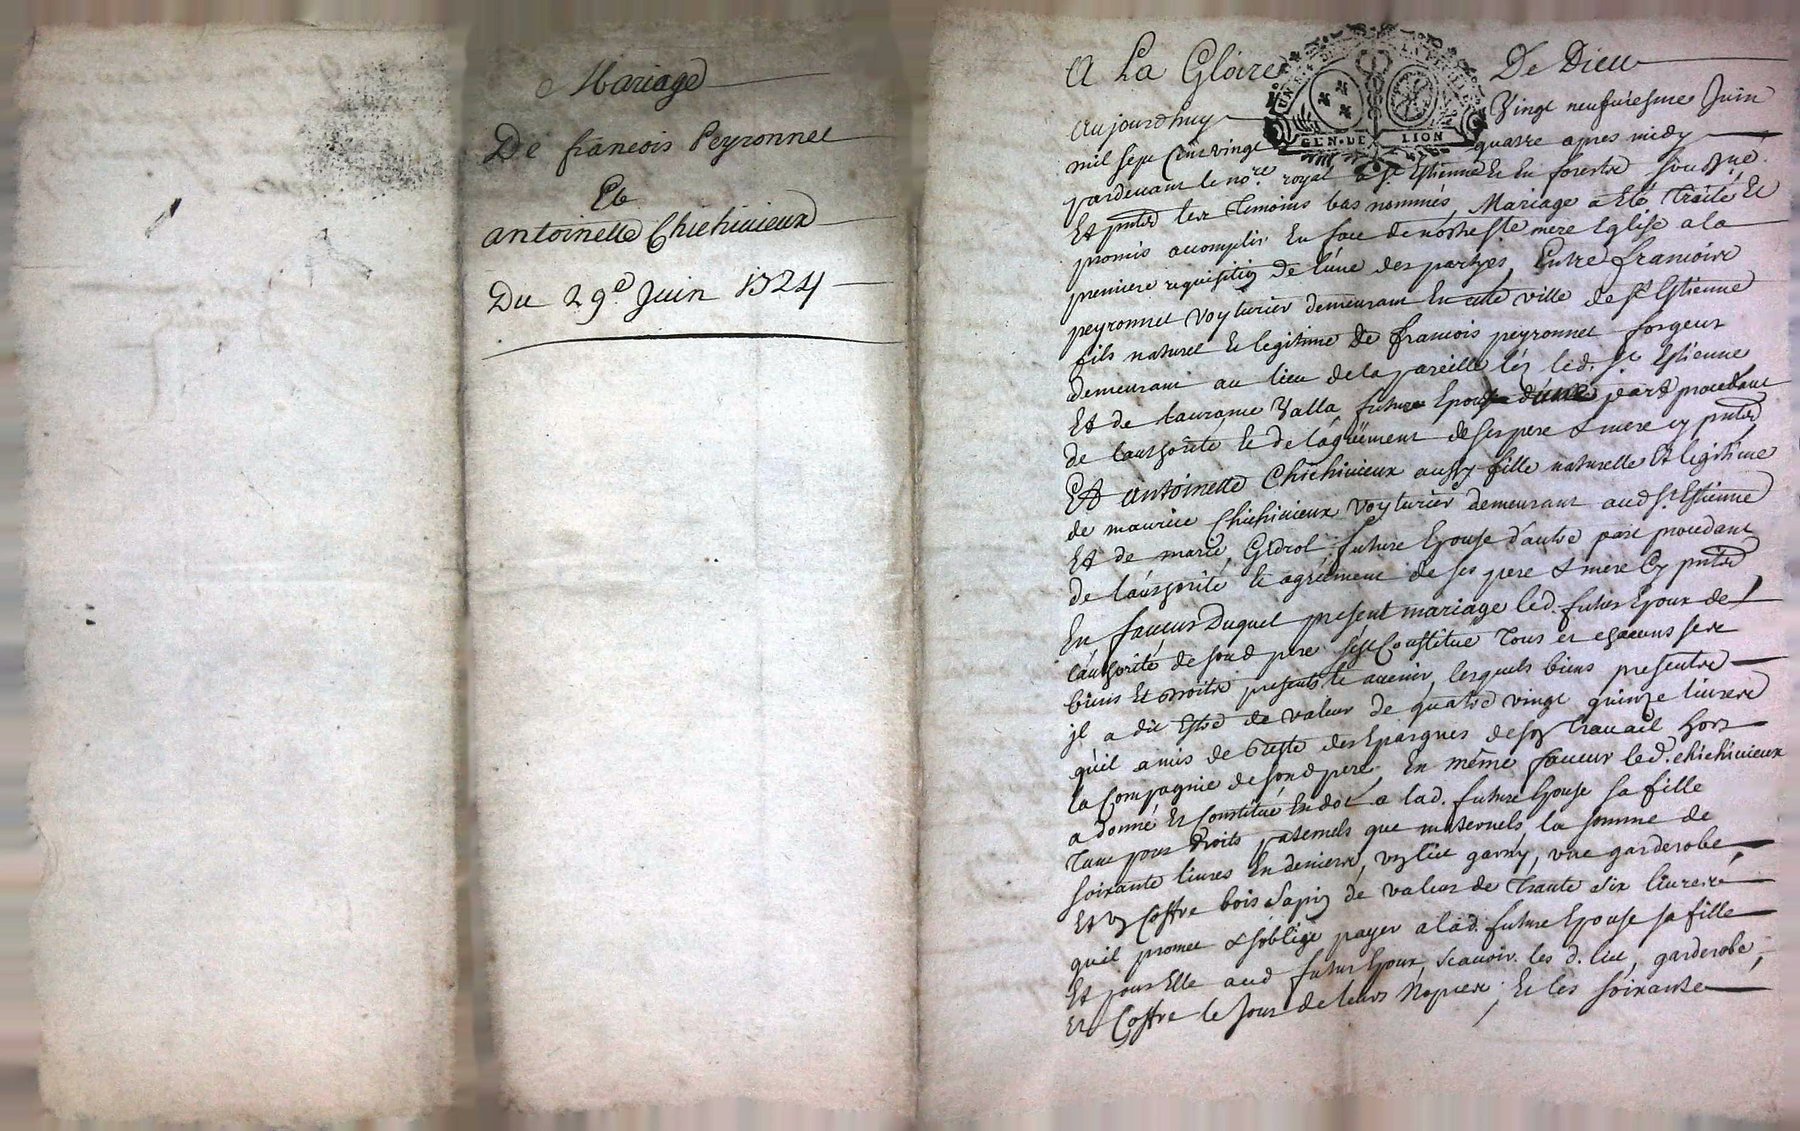 Mariage
De francois Peyronnet
Et
antoinette Chichivieux
Du 29e Juin 1724
A La Gloire De Dieu
GEN. DE LION
Aujourdhuy Vingt neufviesme Juin
mil sept Cent vingt quatre apres midy
pardevant le nore. royal a St Estienne En forestz sousgné.
Et pntes les Temoins bas nommés Mariage a Eté Traité Et
promis accomplir En face de nostre Ste mere Eglise a la
premiere requisition de l'une des partyes, Entre francois
peyronnet voyturier demeurant En cette ville de St Estienne
fils naturel Et legitime de francois peyronnet forgeur
demeurant au lieu de la pareille léz led. St Estienne
Et de laurance Valla futur Epoux d'une part procedant
de l'authorité Et de l'agréément de ses pere & mere cy pntes
Et antoinette Chichivieux aussy fille naturelle Et legitime
de maurice Chichivieux voyturier demeurant aud St Estienne
Et de marie Gidrol future Epouse d'autre part procedant
de l'authorité Et agréément de ses pere & mere Cy pntes
En faveur Duquel present mariage led. futur Epoux de
l'authorité de sond pere s'est Constitué Tous et chacuns ses
biens Et droits presents Et avenir, lesquels biens presents
jl a dit Estre de valeur de quatre vingt quinze livres
qu'il a mis de reste des Epargnes de son Travail hors
la Compagnie de sond pere, En même faveur led. chichivieux
a donné Et Constitué En dot a lad. future Epouse sa fille
Tant pour droits paternels que maternels, la somme de
soixante livres En deniers, vn lict garny, vne garderobe,
Et vn Coffre bois sapin de valeur de Trante six livres
qu'il promet & s'oblige payer a lad. future Epouse sa fille
Et pour Elle aud futur Epoux, scavoir les d. lict, garderobe,
Et Coffre le jour de leurs Nopces, Et les soixante